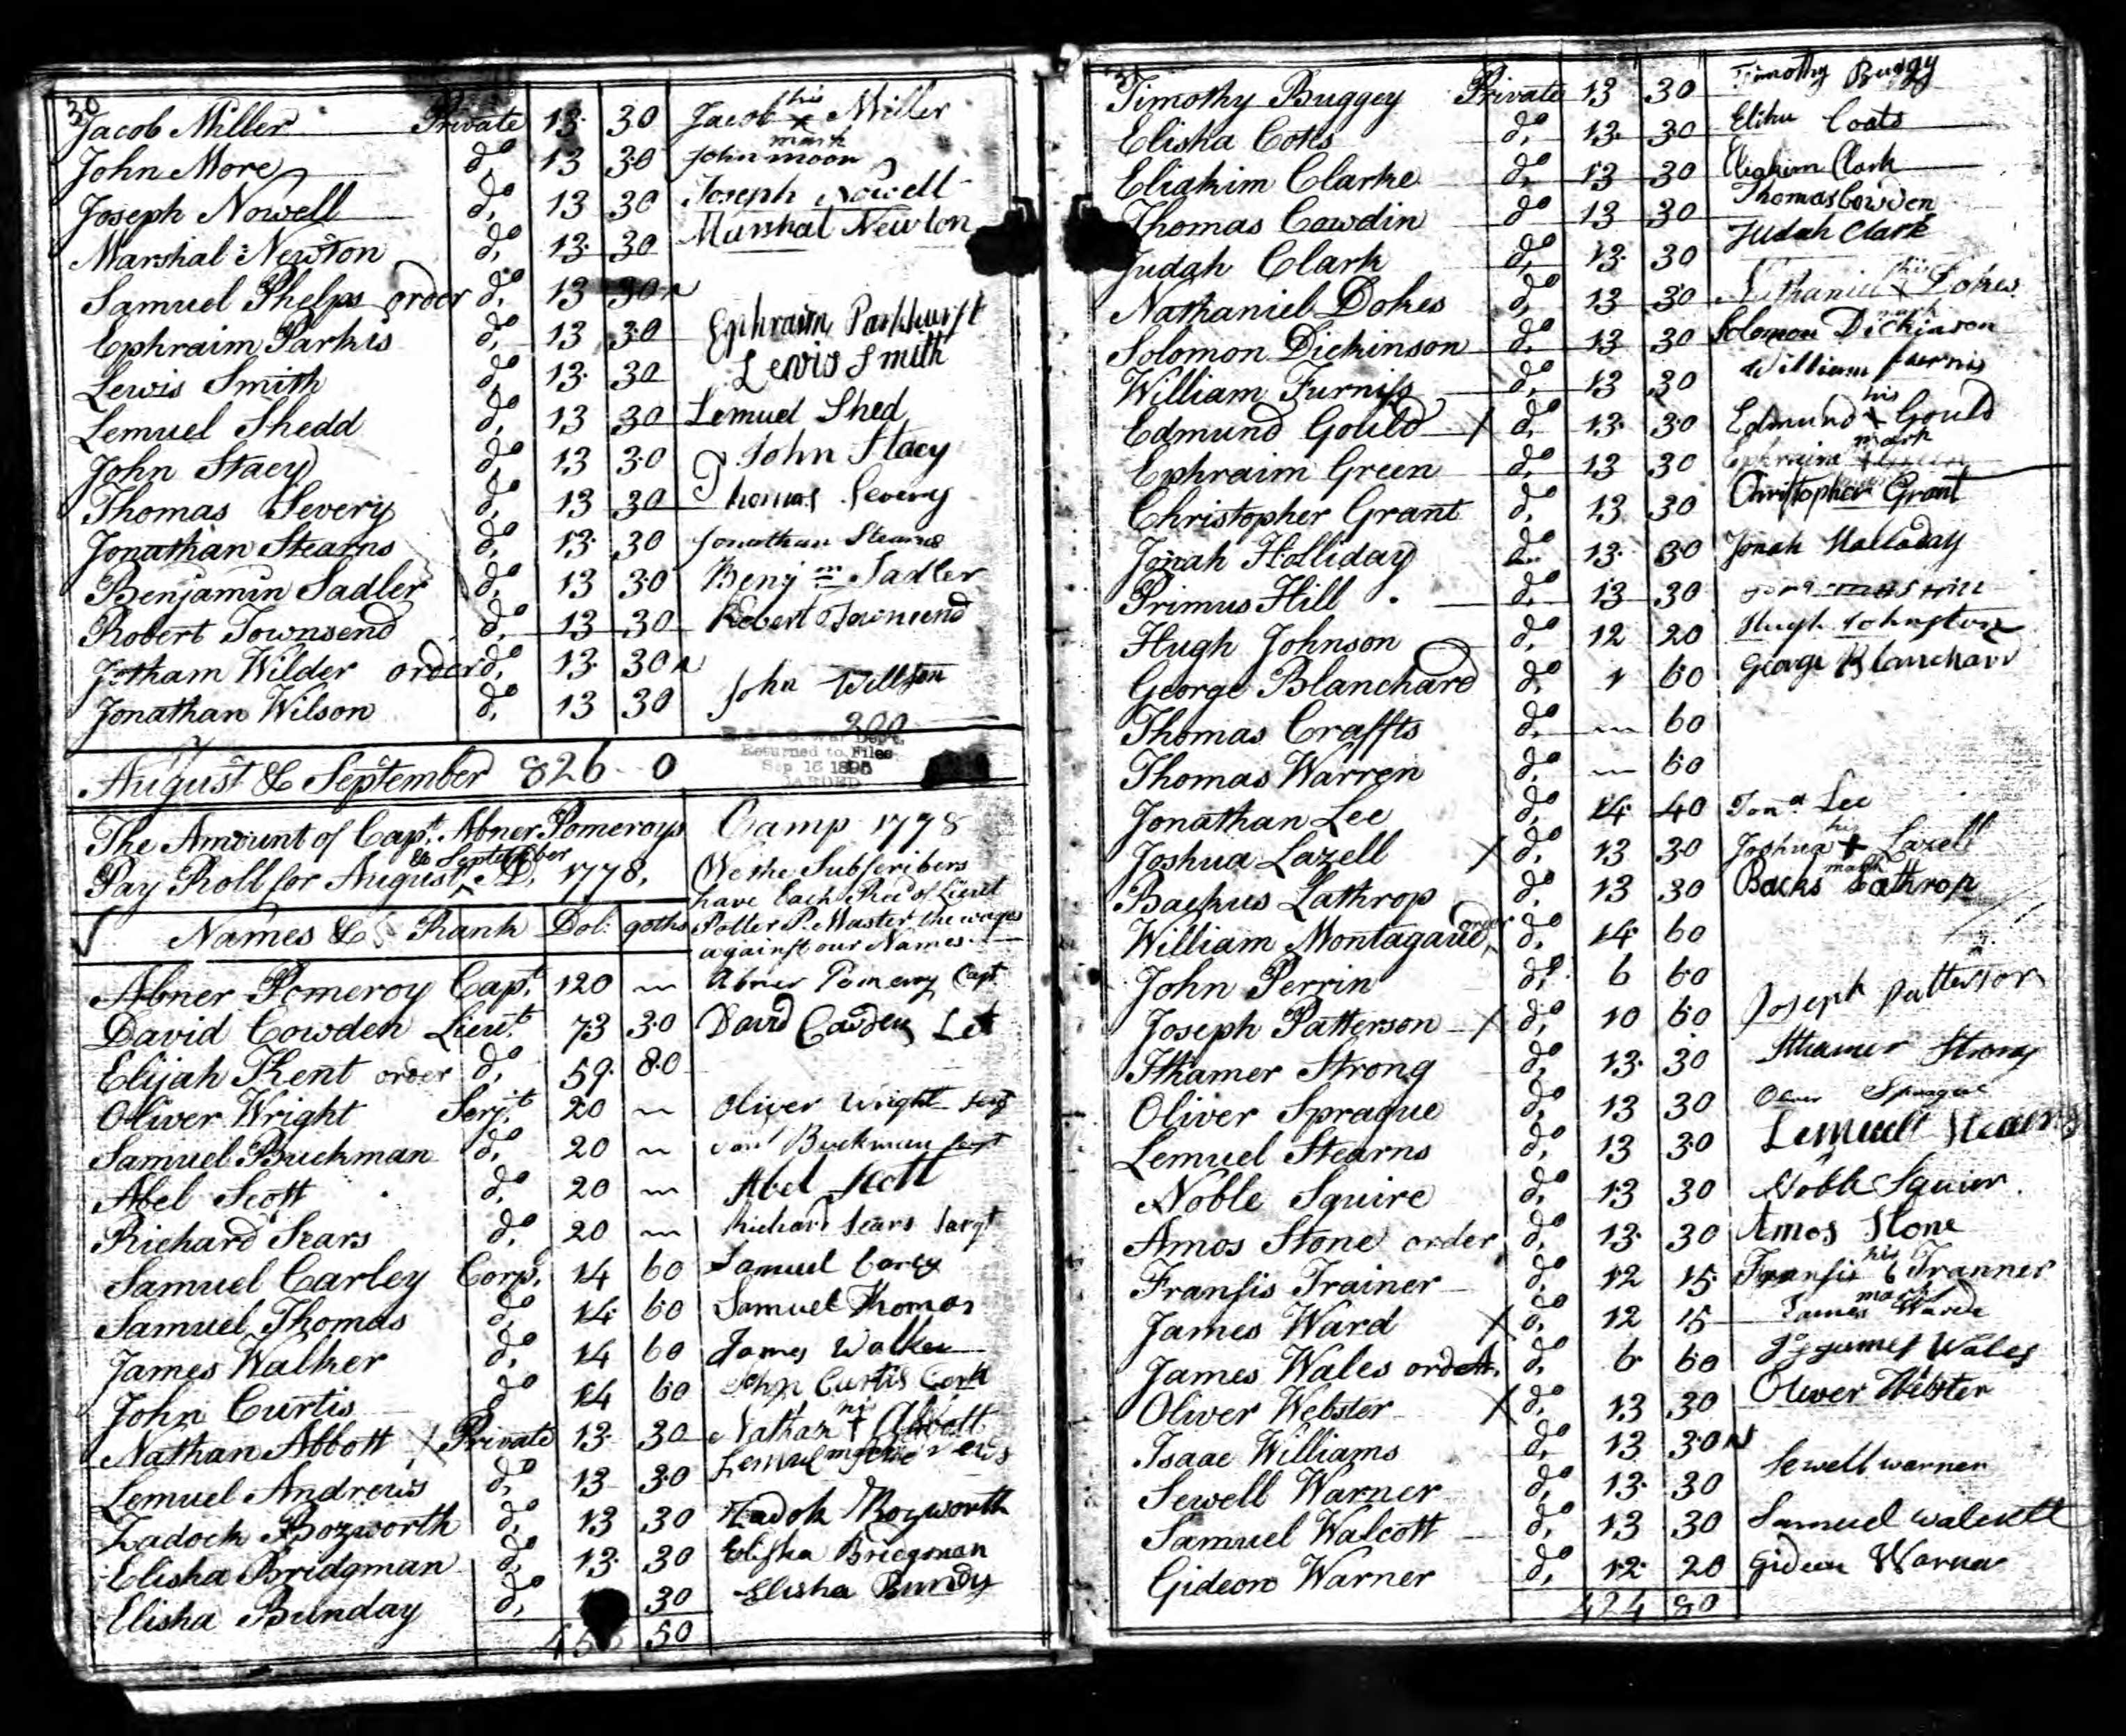 30
Jacob Miller Private 13 30 Jacob his x mark Miller
John More do 13 30 John moor
Joseph Nowell do 13 30 Joseph Nowell
Marshal Newton do 13 30 Marshal Newton
Samuel Phelps order do 13 30
Ephraim Parkis do 13 30 Ephraim Parkhurst
Lewis Smith do 13 30 Lewis Smith
Lemuel Shedd do 13 30 Lemuel Shed
John Stacy do 13 30 John Stacy
Thomas Severy do 13 30 Thomas Severy
Jonathan Stearns do 13 30 Jonathan Stearns
Benjamin Sadler do 13 30 Benjm Sadler
Robert Townsend do 13 30 Robert Townsend
Jotham Wilder order do 13 30
Jonathan Wilson do 13 30 John Willson
300
War Dept.
Returned to Files
Sep 16 1895
CARDED
August & September 826 0
The Amount of Capt. Abner Pomeroys
Pay Roll for August & September AD, 1778,
Camp 1778
We the Subscribers
have Each Recd of Lieut
Potter P. Master the wages
against our Names
Names & Rank Dol: 90ths
Abner Pomeroy Capt. 120 Abner Pomeroy Capt
David Cowden Lieut. 73 30 David Cowden Let
Elijah Kent order do 59 80
Oliver Wright Serjt. 20 Oliver Wright Serg
Samuel Buckman do 20 Saml Buckman Sergt
Abel Scott do 20 Abel Scott
Richard Sears do 20 Richard Sears Sargt
Samuel Carley Corp. 14 60 Samuel Carley
Samuel Thomas do 14 60 Samuel Thomas
James Walker do 14 60 James Walker
John Curtis do 14 60 John Curtis Corp
Nathan Abbott Private 13 30 Nathan his + mark Abbott
Lemuel Andrews do 13 30 Lemuel
Zadock Bozworth do 13 30 Zadok Bozworth
Elisha Bridgman do 13 30 Elisha Bridgman
Elisha Bunday do 30 Elisha Bundy
50
31
Timothy Buggey Private 13 30 Timothy Buggy
Elisha Cots do 13 30 Elihu Coats
Eliakim Clarke do 13 30 Eliakim Clark
Thomas Cowdin do 13 30 Thomas Cowden
Judah Clark do 13 30 Judah Clark
Nathaniel Dokes do 13 30 Nathaniel his x mark Dokes
Solomon Dickinson do 13 30 Solomon Dickinson
William Furniss do 13 30 William Furnis
Edmund Gould do 13 30 Edmund his x mark Gould
Ephraim Green do 13 30 Ephraim Green
Christopher Grant do 13 30 Christopher Grant
Jonah Holliday do 13 30 Jonah Halladay
Primus Hill do 13 30
Hugh Johnson do 12 20 Hugh Johnston
George Blanchard do 1 60 George Blanchard
Thomas Craffts do 60
Thomas Warren do 60
Jonathan Lee do 14 40 Jona Lee
Joshua Lazell do 13 30 Joshua his + mark Lazell
Backus Lathrop do 13 30 Backs Lathrop
William Montagaue order do 14 60
John Perrin do 6 60
Joseph Patterson do 10 60 Joseph Patterson
Ithamer Strong do 13 30 Ithamer Strong
Oliver Sprague do 13 30 Oliver Sprague
Lemuel Stearns do 13 30 Lemuel Stearns
Noble Squire do 13 30 Noble Squier
Amos Stone order do 13 30 Amos Stone
Fransis Trainer do 12 15 Fransis his mark Tranner
James Ward do 12 15 James Warde
James Wales order do 6 60 James Wales
Oliver Webster do 13 30 Oliver Webster
Isaac Williams do 13 30
Sewell Warner do 13 30 Sewell warner
Samuel Walcott do 13 30 Samuel walcutt
Gideon Warner do 12 20 Gideon Warner
424 80